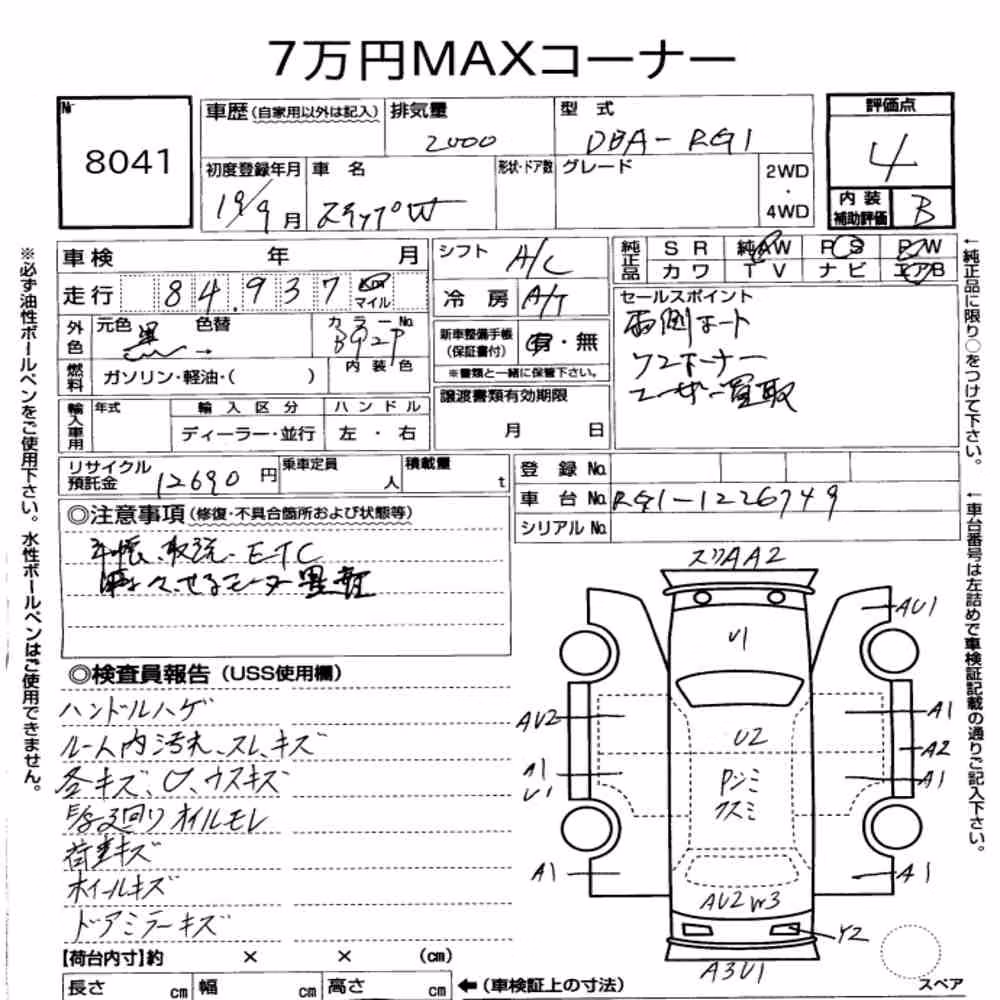 7万円MAXコーナー
№
8041
車歴(自家用以外は記入)
排気量
2000
型 式
DBA-RG1
評価点
4
初度登録年月
19/9月
車 名
ステップW
形状・ドア数
グレード
2WD
・
4WD
内装補助評価
B
車検 年 月
走行
84,937
km
マイル
外色
元色
黒
色替
カラーNo.
B92P
内装色
燃料
ガソリン・軽油・( )
輸入車用
年式
輸入区分
ディーラー・並行
ハンドル
左・右
シフト
A/C
冷房
A/T
新車整備手帳
(保証書付)
有・無
※書類と一緒に保管下さい。
譲渡書類有効期限
月 日
純正品
SR 純AW PS PW
カワ TV ナビ エアB
セールスポイント
両側オート
ワンオーナー
ユーザー買取
リサイクル
預託金
12690円
乗車定員
人
積載量
t
登録No.
車台No.
RG1-1226749
シリアルNo.
◎注意事項(修復・不具合箇所および状態等)
手帳、取説、ETC
◎検査員報告(USS使用欄)
ハンドルハゲ
ルーム内汚れ、スレ、キズ
各キズ、凹、ウスキズ
下廻りオイルモレ
荷室キズ
ホイールキズ
ドアミラーキズ
【荷台内寸】約 × × (cm)
長さ cm
幅 cm
高さ cm
←(車検証上の寸法)
スリAA2
U1
AU1
AU2
A1
U2
A2
A1
U1
A1
Pシミ
クスミ
A1
A1
AU2 W3
Y2
A3U1
スペア
※必ず油性ボールペンをご使用下さい。水性ボールペンはご使用できません。
←純正品に限り○をつけて下さい。
←車台番号は左詰めで車検証記載の通りご記入下さい。